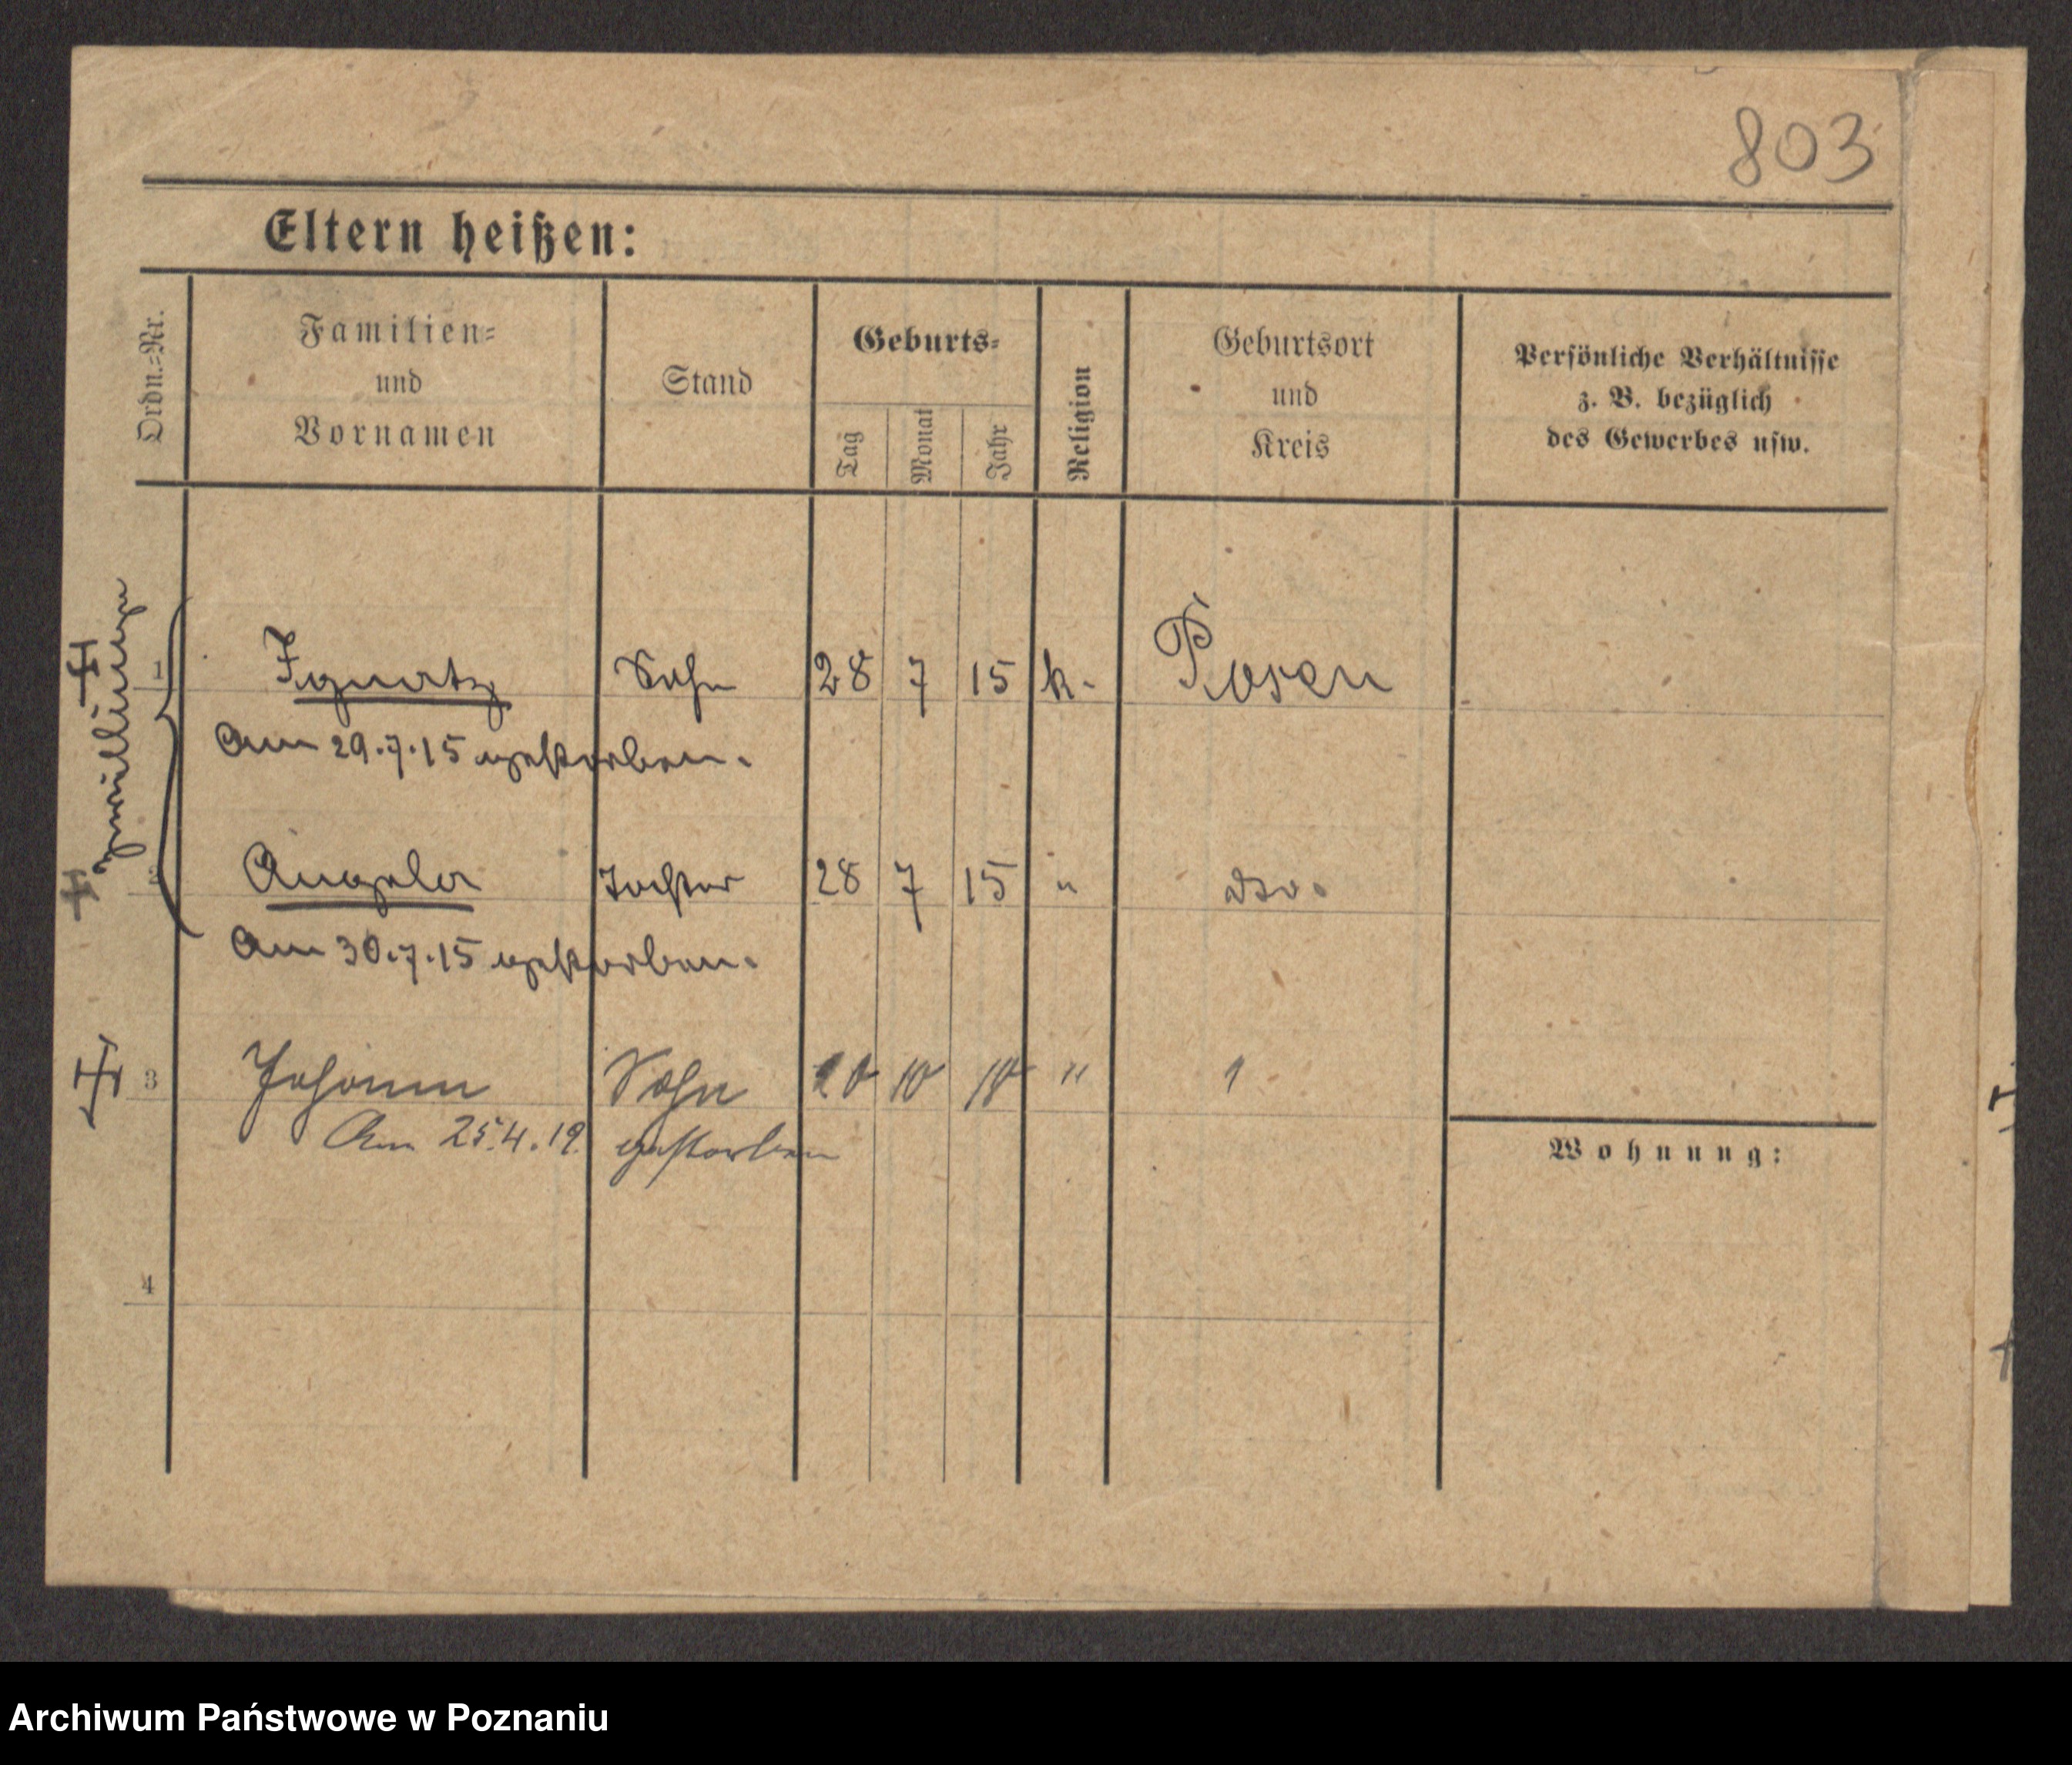 803
Eltern heißen:
Ordn.=Nr.
Familien=
und
Vornamen
Stand
Geburts=
Tag
Monat
Jahr
Religion
Geburtsort
und
Kreis
Persönliche Verhältnisse
z. B. bezüglich
des Gewerbes usw.
Zwillinge
1 Ignatz Sohn 28 7 15 k. Posen
Am 29.7.15 gestorben.
2 Angela Tochter 28 7 15 " dto.
Am 30.7.15 gestorben.
3 Johann Sohn 10 "
Am 25.4.19. gestorben
Wohnung:
4
Archiwum Państwowe w Poznaniu